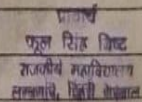 प्राचार्य
फूल सिंह बिष्ट
राजकीय महाविद्यालय
लम्बगांव, टिहरी गढ़वाल